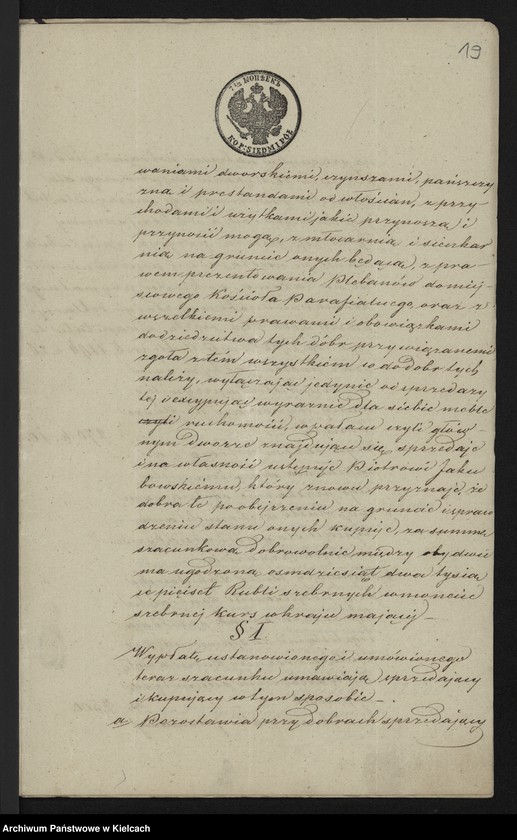 19
7½ КОПѢЕКЪ
KOP: SIEDM I PÓŁ
waniami dworskiemi, czynszami, pańszczy
zna i prestandami od włościan, z przy-
chodami i użytkami jakie przynoszą i
przynosić mogą, z młocarnią i sieczkar
nią na gruncie onych będącą, z pra-
wem prezentowania Plebanów do miej-
scowego Kościoła Parafialnego, oraz z
wszelkiemi prawami i obowiązkami
do dziedzictwa tych dóbr przywiązanemi
zgoła z tem wszystkiem co do dóbr tych
należy, wyłączając jedynie od sprzedaży
tej i excypując wyraźnie dla siebie meble
czyli ruchomość, w pałacu czyli głów-
nym dworze znajdujące się, sprzedaje
i na własność ustępuje Piotrowi Jaku
bowskiemu, który znowu przyznaje, że
dobra te po obejrzeniu na gruncie i spraw
dzeniu stanu onych kupuje, za summę
szacunkową dobrowolnie między oby dwie
ma ugodzoną osmdziesiąt dwa tysią
ce pięćset Rubli srebrnych w monecie
srebrnej kurs w kraju mającej
§ I.
Wypłatę ustanowionego i umówionego
teraz szacunku umawiają sprzedający
i kupujący w tym sposobie
a, Pozostawia przy dobrach sprzedający
Archiwum Państwowe w Kielcach